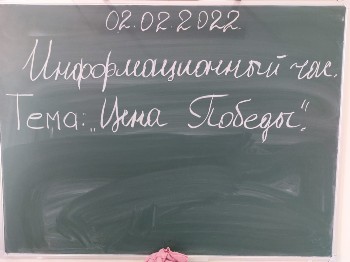 02.02.2022
Информационный час.
Тема: „Цена Победы".